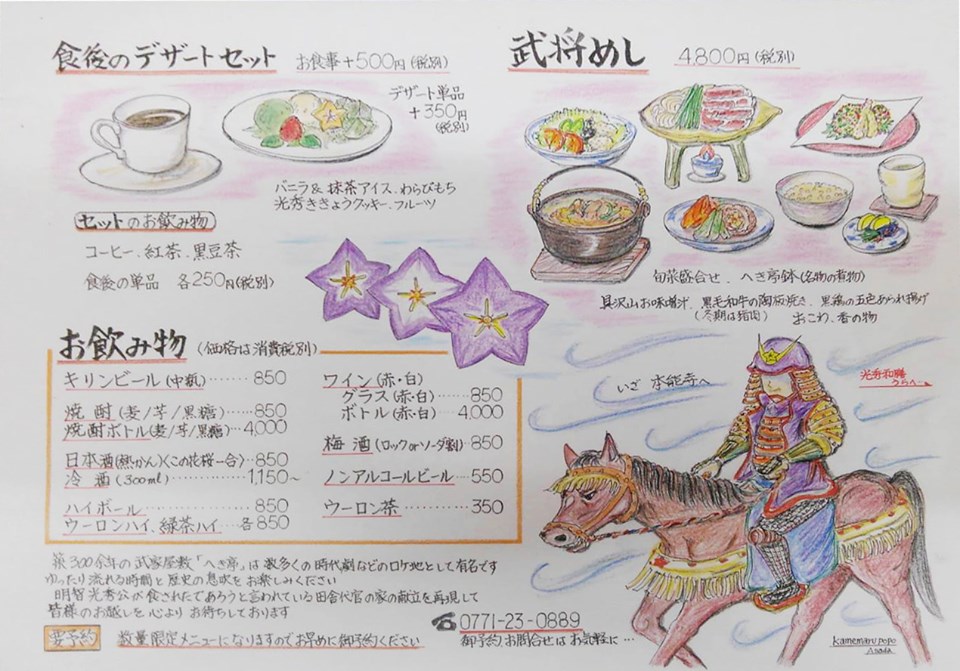 食後のデザートセット お食事+500円(税別)
デザート単品
+350円
(税別)
バニラ&抹茶アイス、わらびもち
光秀ききょうクッキー、フルーツ
セットのお飲み物
コーヒー、紅茶、黒豆茶
食後の単品 各250円(税別)
武将めし 4800円(税別)
旬菜盛合せ、へき亭鉢(名物の煮物)
具沢山お味噌汁、黒毛和牛の陶板焼き、黒鶏の五色あられ揚げ
(冬期は猪肉) おこわ、香の物
お飲み物 (価格は消費税別)
キリンビール(中瓶)……850
焼酎(麦/芋/黒糖)……850
焼酎ボトル(麦/芋/黒糖)…4,000
日本酒(熱かん)(この花桜一合)…850
冷酒(300ml)……1,150~
ハイボール……850
ウーロンハイ、緑茶ハイ…各850
ワイン(赤・白)
グラス(赤・白)……850
ボトル(赤・白)……4,000
梅酒(ロックorソーダ割)…850
ノンアルコールビール……550
ウーロン茶……350
いざ 本能寺へ
築300余年の武家屋敷「へき亭」は数多くの時代劇などのロケ地として有名です
ゆったり流れる時間と歴史の息吹をお楽しみください
明智光秀公が食されたであろうと言われている田舎代官の家の献立を再現して
皆様のお越しを心よりお待ちしております
要予約 数量限定メニューになりますのでお早めに御予約ください
☎0771-23-0889
御予約、お問合せはお気軽に…
kamemaru popo
Asada